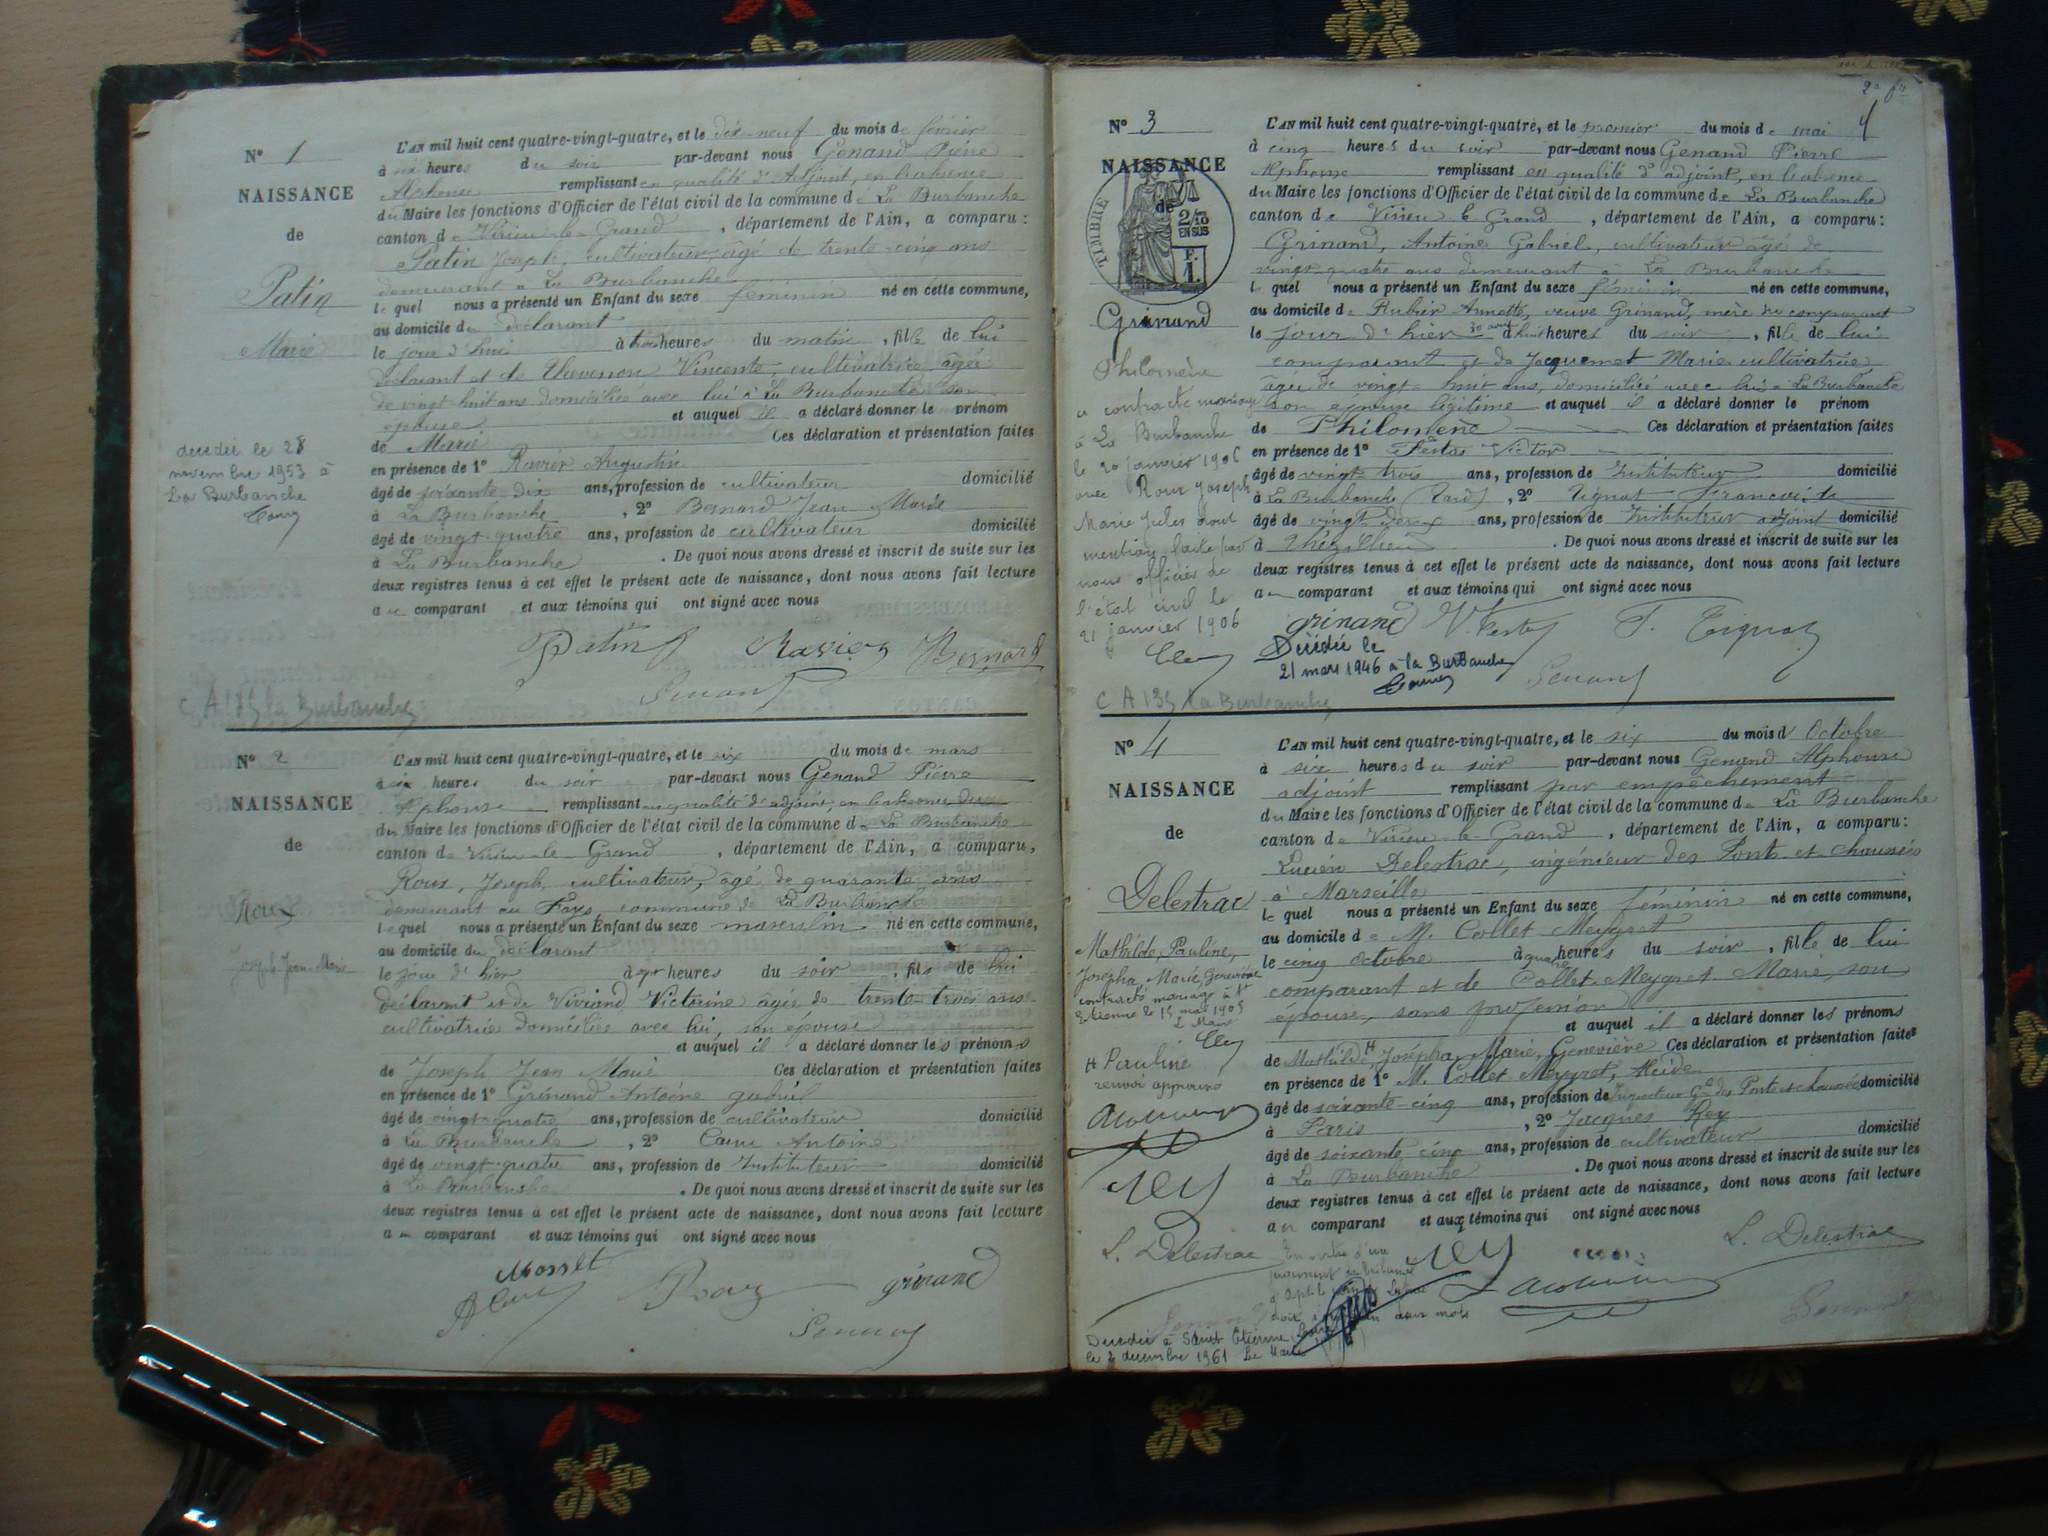 N° 1
NAISSANCE
de
Patin
Marie
decédée le 28
novembre 1953 à
La Burbanche
L'AN mil huit cent quatre-vingt-quatre, et le dix-neuf du mois de février
à six heures du soir par-devant nous Genand Pierre
Alphonse remplissant en qualité d'Adjoint, en l'absence
du Maire les fonctions d'Officier de l'état civil de la commune de La Burbanche
canton de Virieu-le-Grand, département de l'Ain, a comparu :
Patin Joseph, cultivateur, âgé de trente-cinq ans
demeurant à La Burbanche
lequel nous a présenté un Enfant du sexe féminin né en cette commune,
au domicile du déclarant
le jour d'hui à heures du matin, fille de lui
déclarant et de Thevenon Vincente, cultivatrice âgée
de vingt-huit ans domiciliée avec lui à La Burbanche son
épouse. et auquel il a déclaré donner le prénom
de Marie Ces déclaration et présentation faites
en présence de 1° Ravier Augustin
âgé de soixante-dix ans, profession de cultivateur domicilié
à La Burbanche, 2° Bernard Jean Marie
âgé de vingt-quatre ans, profession de cultivateur domicilié
à La Burbanche. De quoi nous avons dressé et inscrit de suite sur les
deux registres tenus à cet effet le présent acte de naissance, dont nous avons fait lecture
au comparant et aux témoins qui ont signé avec nous
Patin Ravier Bernard
Genand
La Burbanche
N° 2
NAISSANCE
de
Roux
Joseph Jean Marie
L'AN mil huit cent quatre-vingt-quatre, et le six du mois de mars
à six heures du soir par-devant nous Genand Pierre
Alphonse remplissant en qualité d'adjoint, en l'absence du
du Maire les fonctions d'Officier de l'état civil de la commune de La Burbanche
canton de Virieu-le-Grand, département de l'Ain, a comparu,
Roux, Joseph, cultivateur, âgé de quarante ans
demeurant au Fays commune de La Burbanche
lequel nous a présenté un Enfant du sexe masculin né en cette commune,
au domicile du déclarant
le jour d'hier à sept heures du soir, fils de lui
déclarant et de Viviand Victorine âgée de trente-trois ans
cultivatrice domiciliée avec lui, son épouse
et auquel il a déclaré donner les prénoms
de Joseph Jean Marie Ces déclaration et présentation faites
en présence de 1° Grinand Antoine gabriel
âgé de vingt-quatre ans, profession de cultivateur domicilié
à La Burbanche, 2° Antoine
âgé de vingt-quatre ans, profession de Instituteur domicilié
à La Burbanche. De quoi nous avons dressé et inscrit de suite sur les
deux registres tenus à cet effet le présent acte de naissance, dont nous avons fait lecture
au comparant et aux témoins qui ont signé avec nous
Roux grinand
Genand
N° 3
NAISSANCE
de
TIMBRE
2/10
EN SUS
F.
1.
Grinand
Philomène
a contracté mariage
à La Burbanche
le 20 janvier 1906
avec Roux Joseph
Marie Jules dont
mention faite par
nous officier de
l'état civil le
21 janvier 1906
4
L'AN mil huit cent quatre-vingt-quatre, et le premier du mois de mai
à cinq heures du soir par-devant nous Genand Pierre
Alphonse remplissant en qualité d'adjoint, en l'absence
du Maire les fonctions d'Officier de l'état civil de la commune de La Burbanche
canton de Virieu le Grand, département de l'Ain, a comparu :
Grinand, Antoine Gabriel, cultivateur âgé de
vingt-quatre ans demeurant à La Burbanche
lequel nous a présenté un Enfant du sexe féminin né en cette commune,
au domicile de Rubier Annette, veuve Grinand, mère du comparant
le jour d'hier 30 avril à huit heures du soir, fille de lui
comparant et de Jacquemet Marie cultivatrice
âgée de vingt-huit ans, domiciliée avec lui à La Burbanche
son épouse légitime et auquel il a déclaré donner le prénom
de Philomène Ces déclaration et présentation faites
en présence de 1° Festas Victor
âgé de vingt-trois ans, profession de Instituteur domicilié
à La Burbanche, 2° Tignat
âgé de vingt-deux ans, profession de Instituteur adjoint domicilié
à. De quoi nous avons dressé et inscrit de suite sur les
deux registres tenus à cet effet le présent acte de naissance, dont nous avons fait lecture
au comparant et aux témoins qui ont signé avec nous
grinand V. Festas F. Tignat
Décédée le
21 mars 1946 à la Burbanche
Genand
La Burbanche
N° 4
NAISSANCE
de
Delestrac
Mathilde, Pauline,
Josépha, Marie, Geneviève
contracté mariage à St
Etienne le 15 mai 1905
Le Maire
H Pauline
renvoi approuvé
Rey
L. Delestrac
L'AN mil huit cent quatre-vingt-quatre, et le six du mois d'Octobre
à six heures du soir par-devant nous Genand Alphonse
adjoint remplissant par empêchement
du Maire les fonctions d'Officier de l'état civil de la commune de La Burbanche
canton de Virieu-le-Grand, département de l'Ain, a comparu :
Lucien Delestrac, ingénieur des Ponts-et-chaussées
à Marseille
lequel nous a présenté un Enfant du sexe féminin né en cette commune,
au domicile de M. Collet-Meygret
le cinq octobre à quatre heures du soir, fille de lui
comparant et de Collet-Meygret Marie, son
épouse, sans profession
et auquel il a déclaré donner les prénoms
de Mathilde H Josépha, Marie, Geneviève Ces déclaration et présentation faites
en présence de 1° M. Collet-Meygret,
âgé de soixante-cinq ans, profession de Inspecteur Gal des Ponts et chaussées domicilié
à Paris, 2° Jacques Rey
âgé de soixante cinq ans, profession de cultivateur domicilié
à La Burbanche. De quoi nous avons dressé et inscrit de suite sur les
deux registres tenus à cet effet le présent acte de naissance, dont nous avons fait lecture
au comparant et aux témoins qui ont signé avec nous
Rey L. Delestrac
Genand
Décédée à Saint Etienne
le 2 décembre 1961 Le Maire